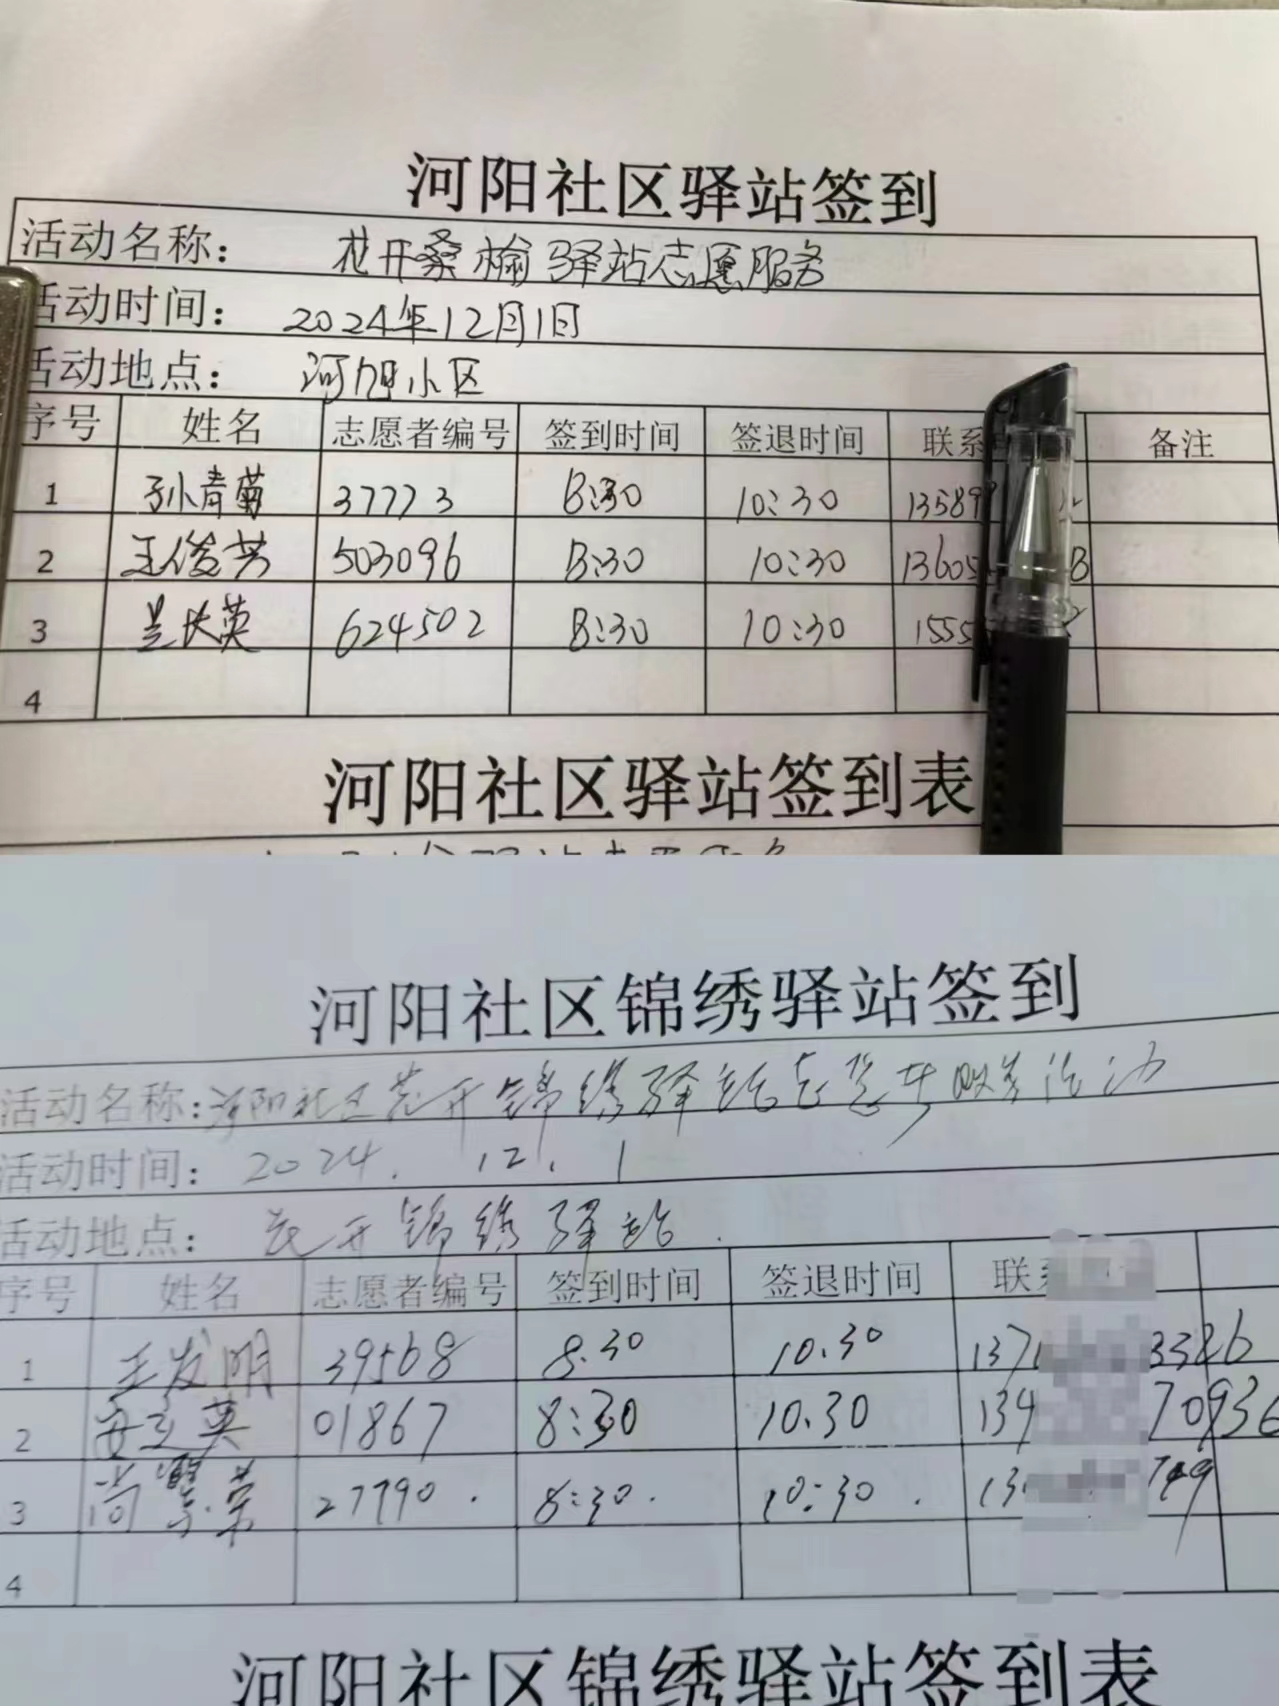 河阳社区驿站签到
活动名称： 花开桑榆驿站志愿服务
活动时间： 2024年12月1日
活动地点： 河旭小区
序号 姓名 志愿者编号 签到时间 签退时间 联系 备注
1 孙青菊 37773 8:30 10:30 13589
2 王俊芳 503096 8:30 10:30 13605 8
3 吴长英 624502 8:30 10:30 1555
4
河阳社区驿站签到表
河阳社区锦绣驿站签到
活动名称：河阳社区花开锦绣驿站志愿服务活动
活动时间： 2024. 12. 1
活动地点： 花开锦绣驿站.
序号 姓名 志愿者编号 签到时间 签退时间 联
1 王发明 39568 8.30 10.30 137 3326
2 安立英 01867 8:30 10.30 134 70936
3 尚翠荣 27790. 8:30. 10:30. 13 749
4
河阳社区锦绣驿站签到表